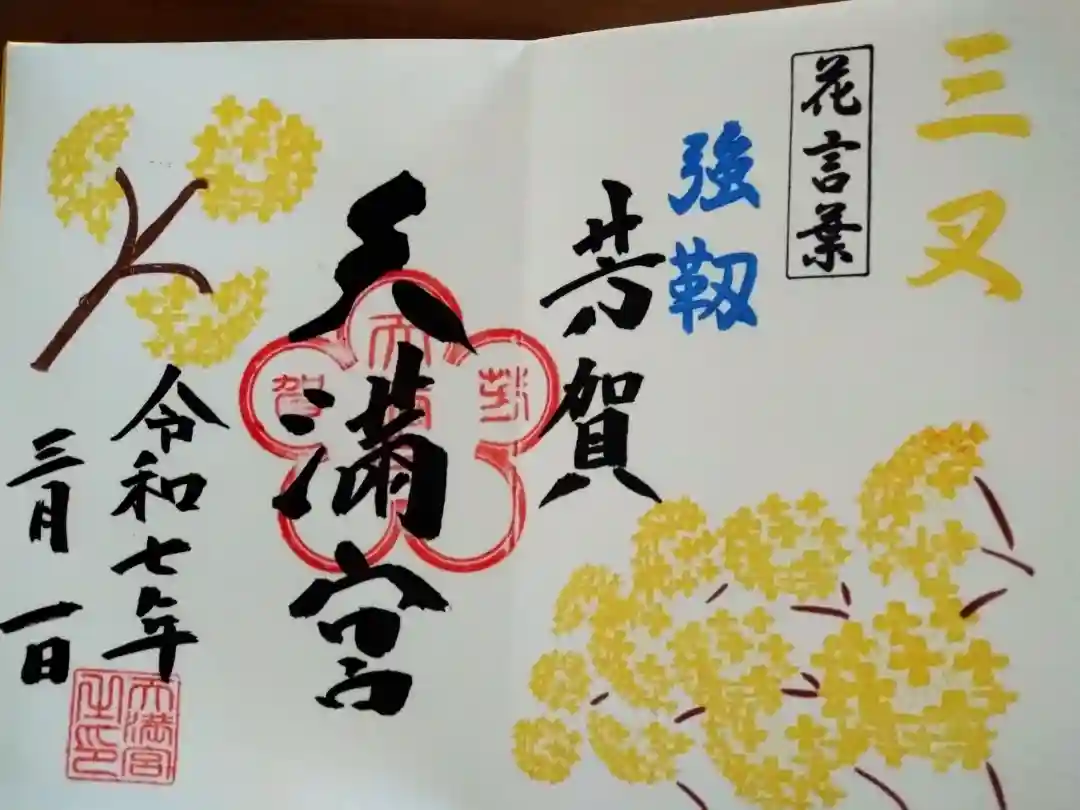 三叉
花言葉
強靭
芳賀
天満宮
令和七年
三月一日
天満宮
之印